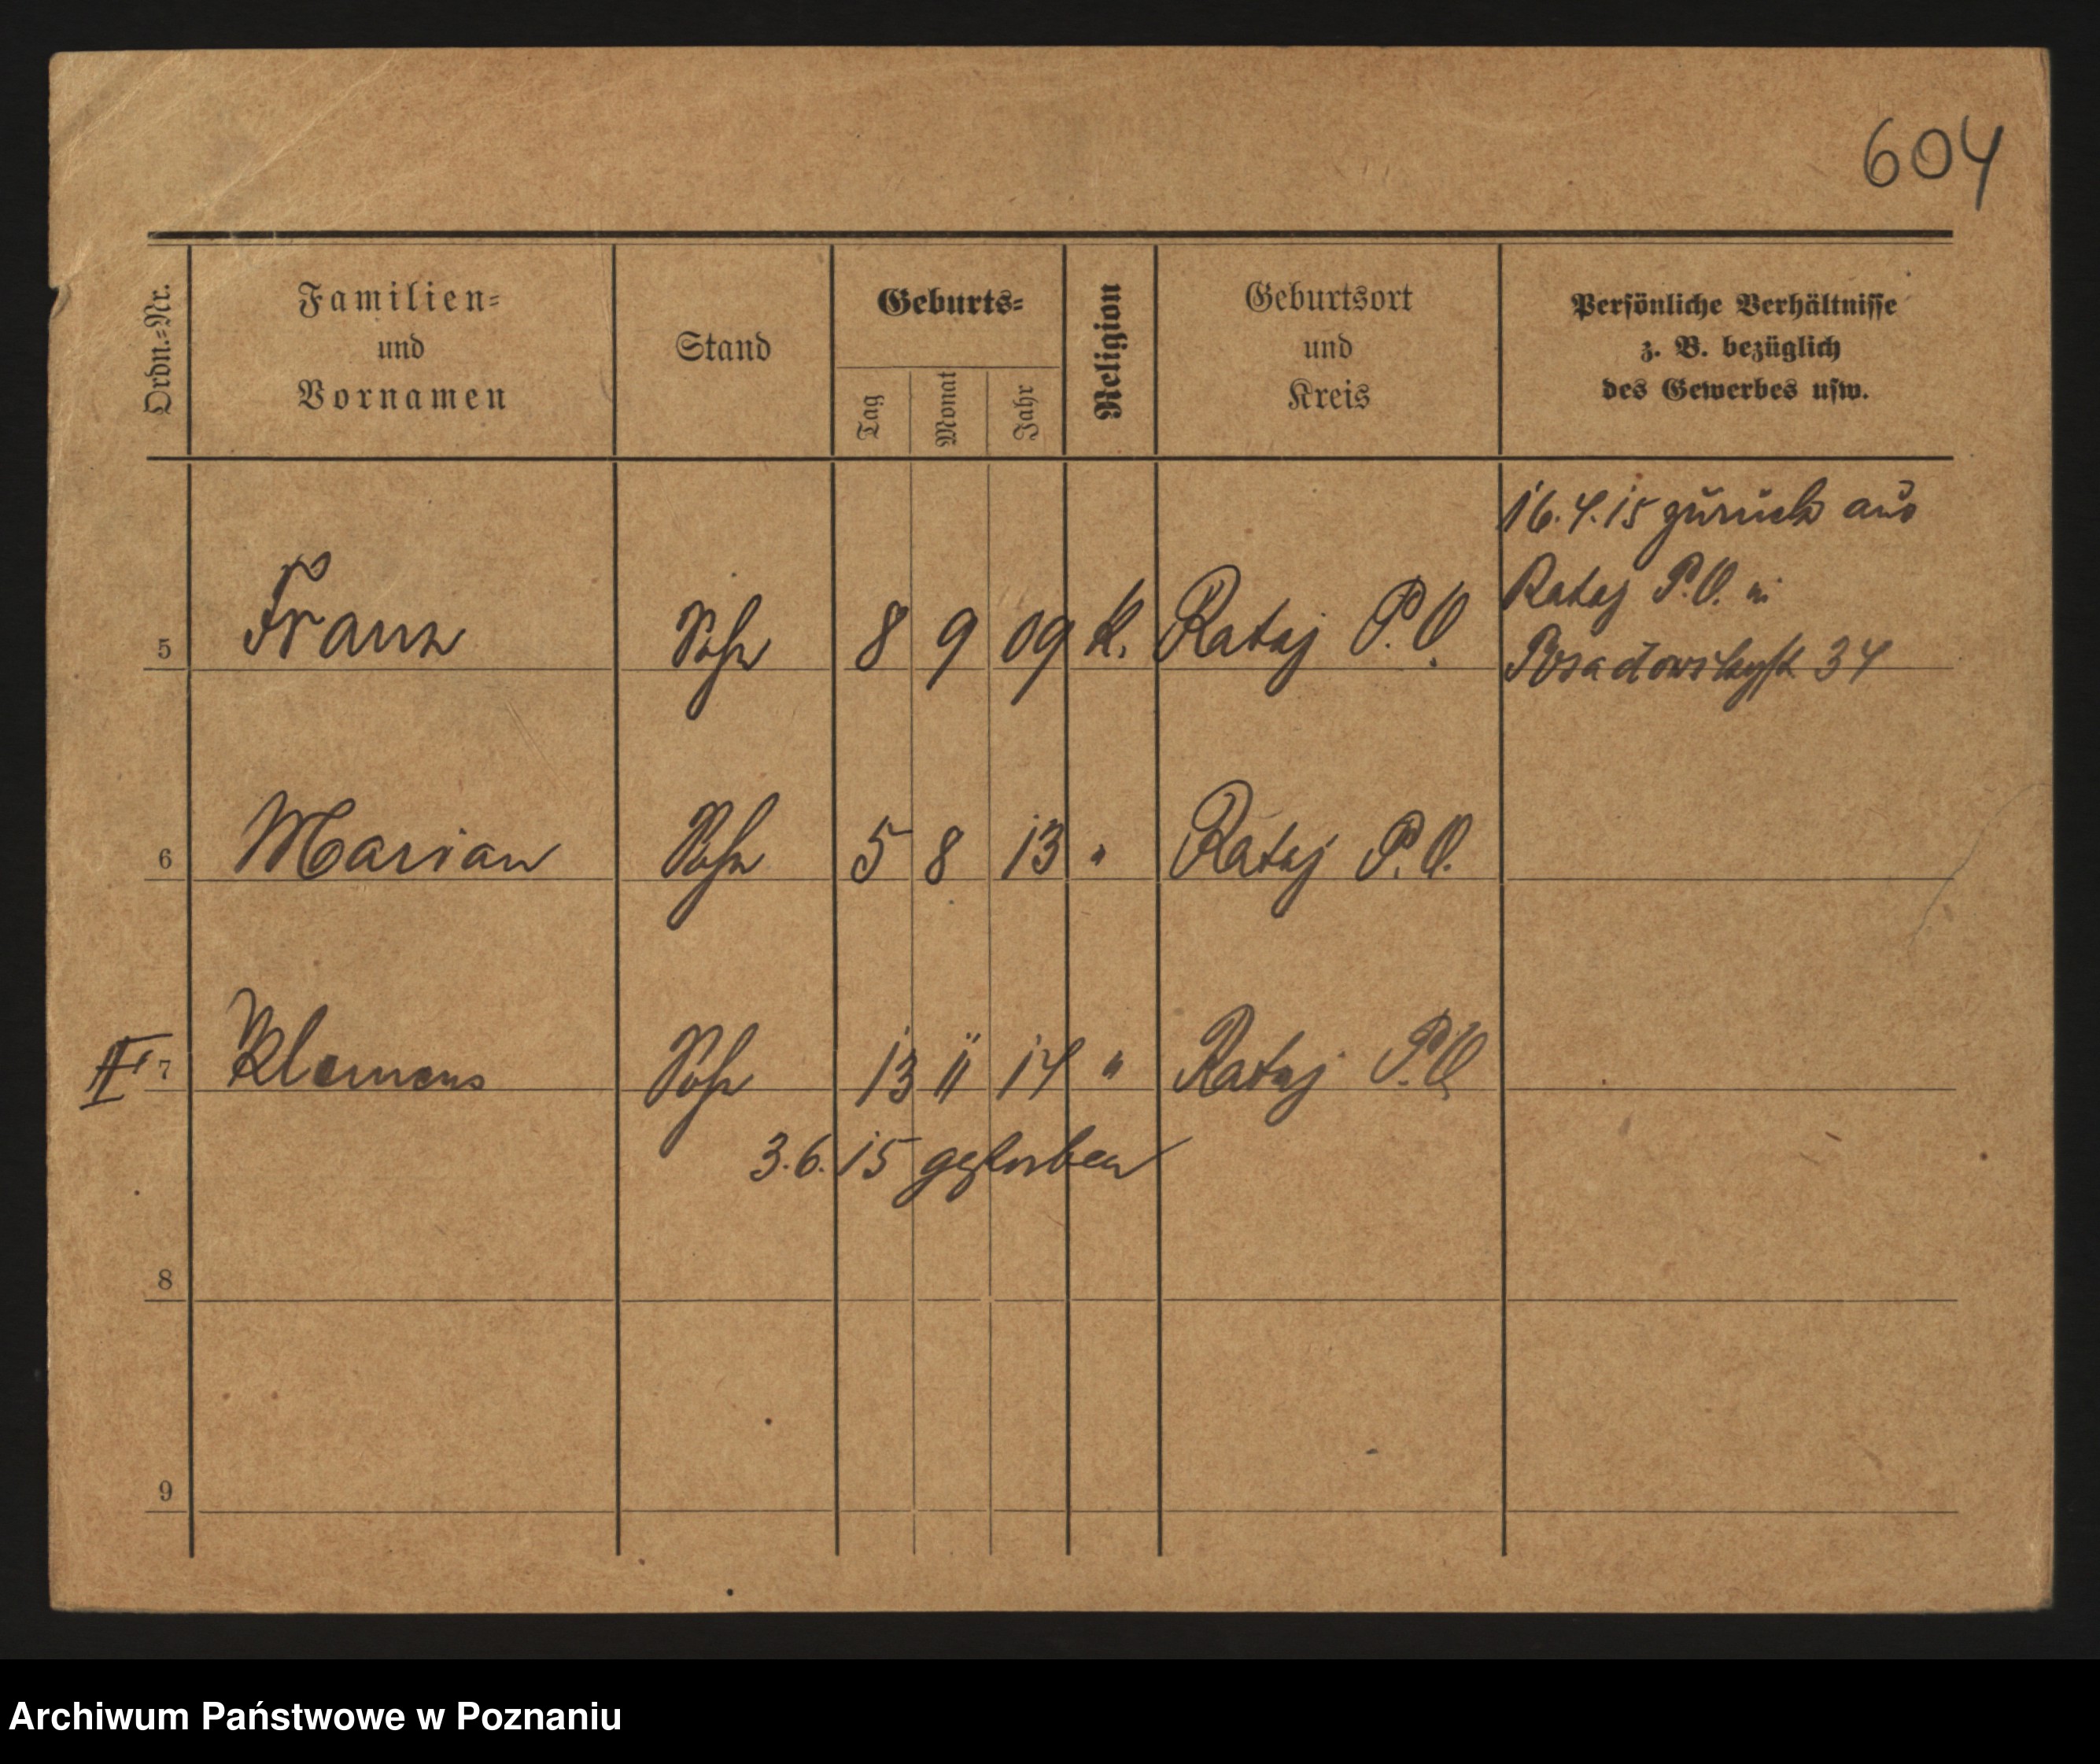 604
Ordn.-Nr.
Familien-
und
Vornamen
Stand
Geburts-
Tag
Monat
Jahr
Religion
Geburtsort
und
Kreis
Persönliche Verhältnisse
z. B. bezüglich
des Gewerbes usw.
16.4.15 zurück aus
Rataj P.O. in
Posadowskystr 34
5 Franz Sohn 8 9 09 k. Rataj P.O.
6 Marian Sohn 5 8 13 " Rataj P.O.
II 7 Klemens Sohn 13 11 14 " Rataj P.O
3.6.15 gestorben
8
9
Archiwum Państwowe w Poznaniu